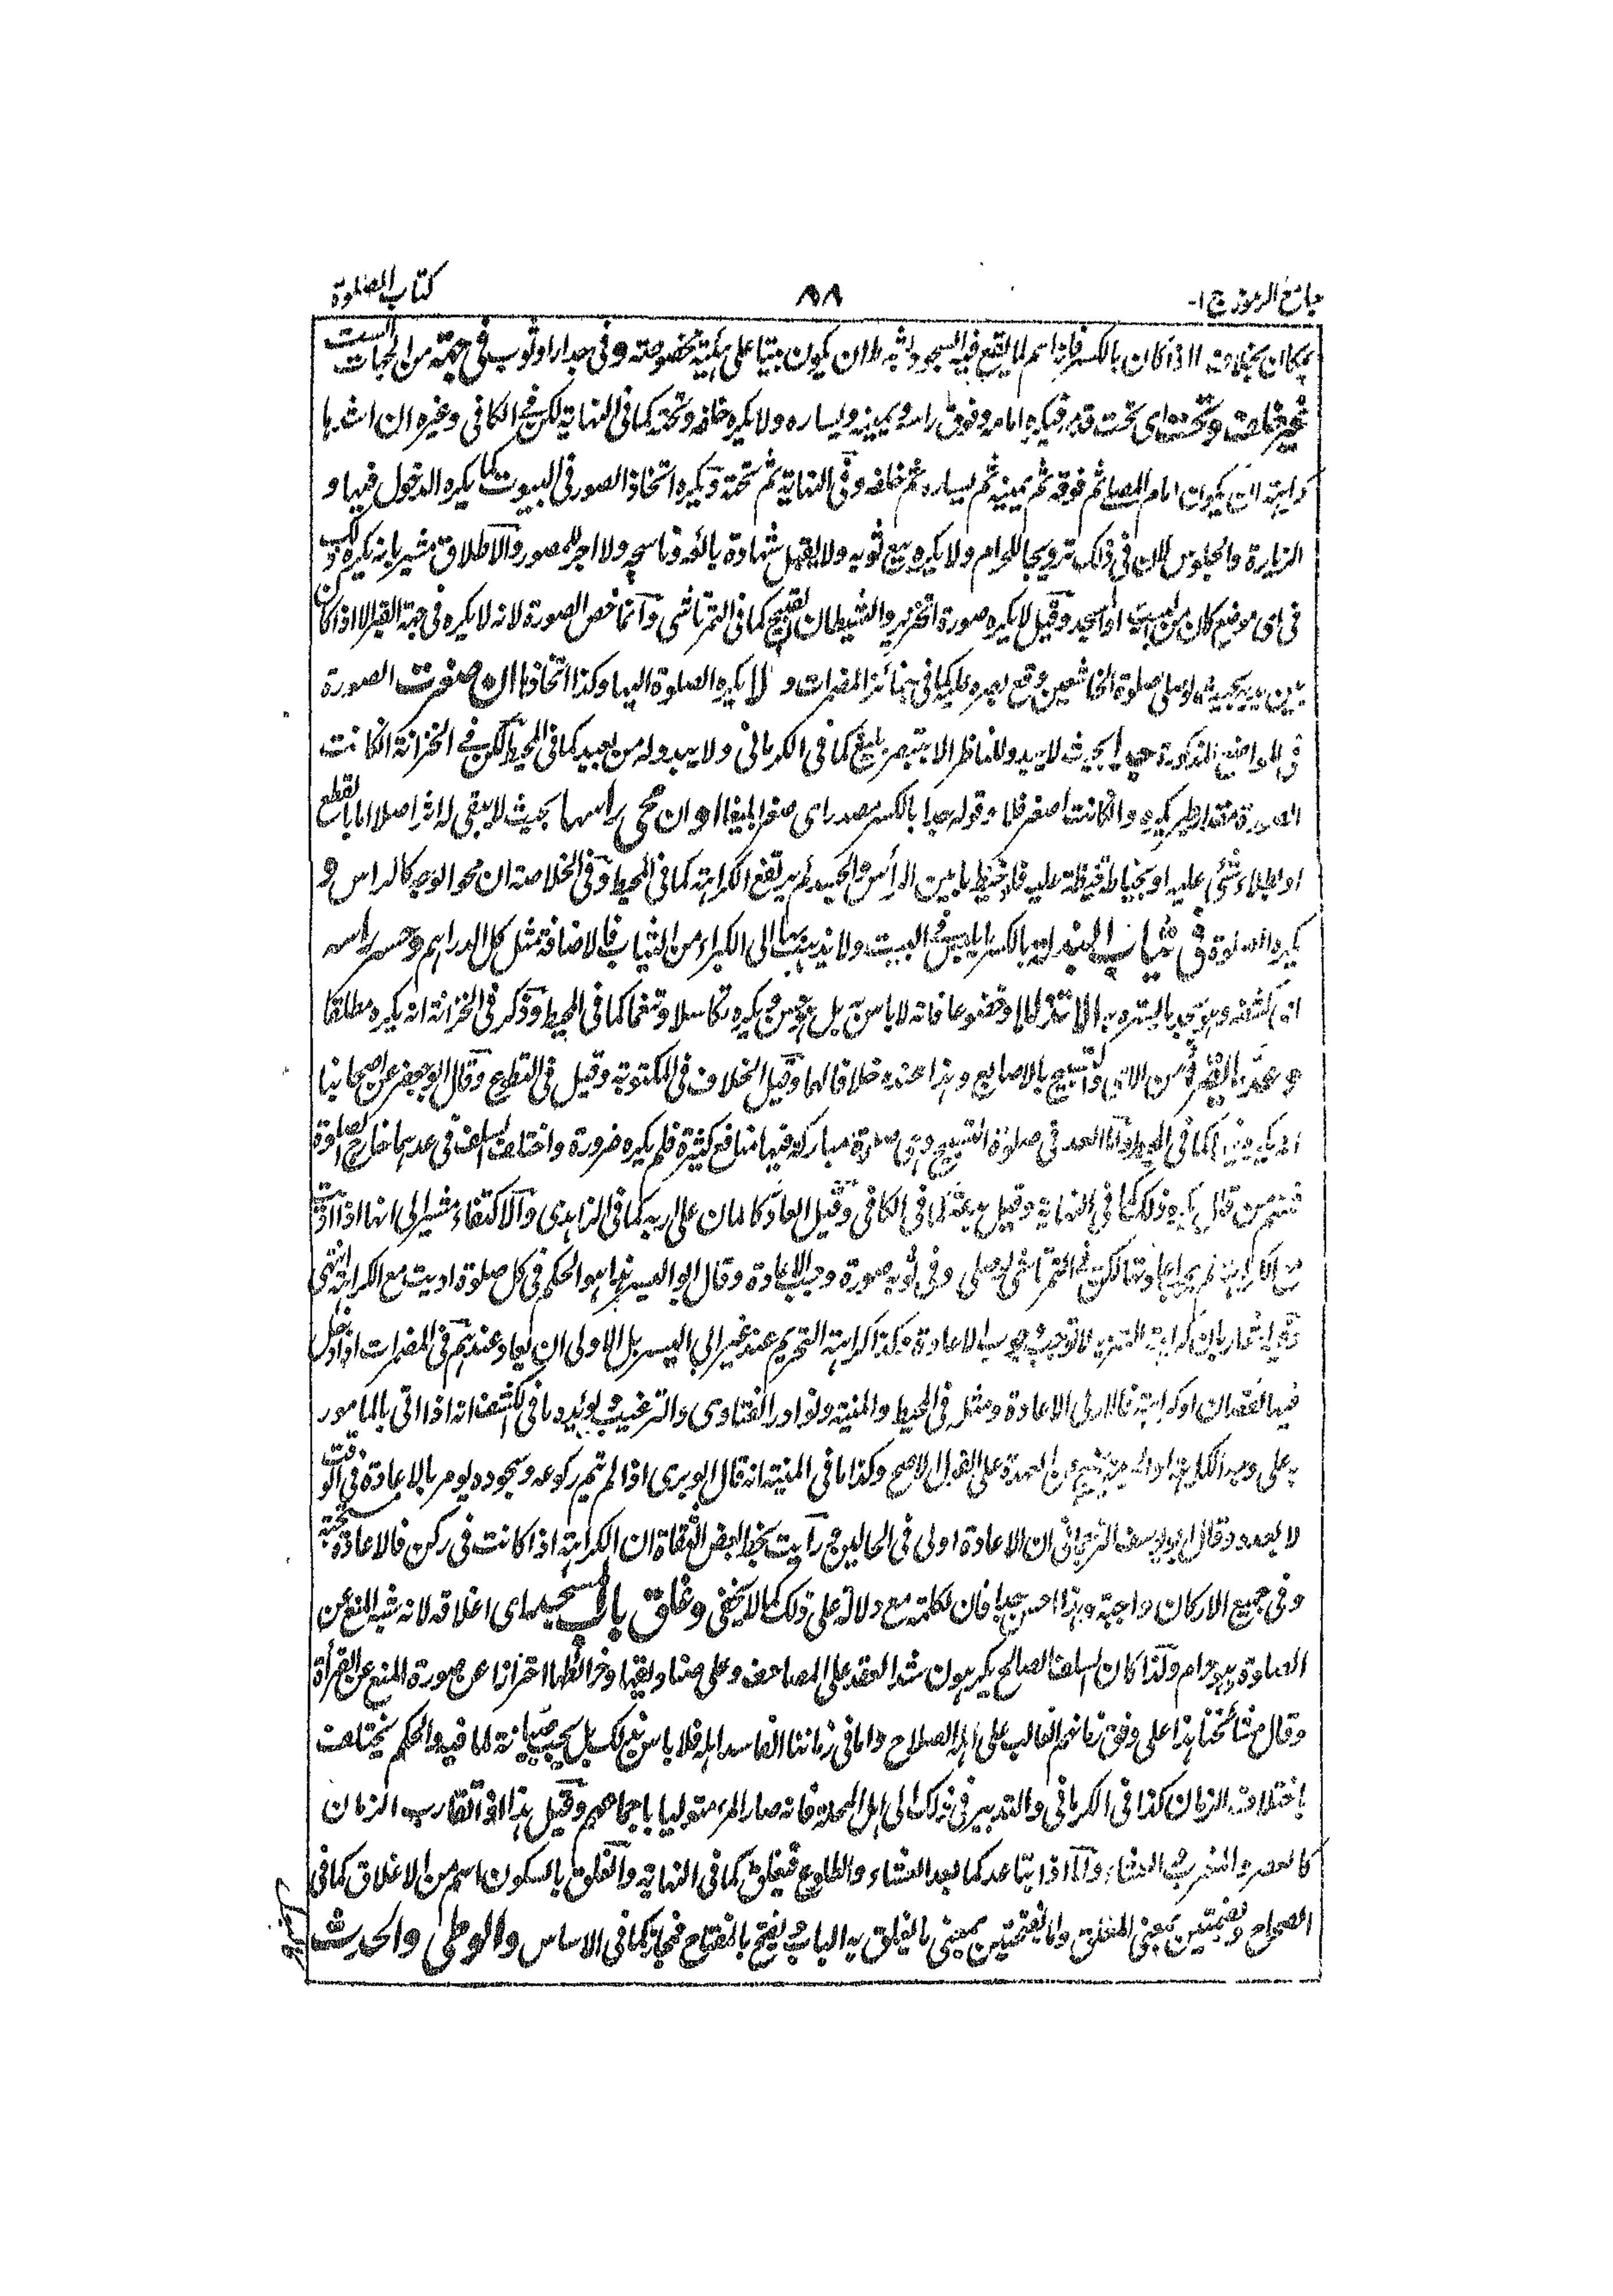 جامع الرموز ج ١- ٨٨ كتاب الصلوة
بمكان بخلاف ما اذا كان بالكسر فانه اسم لما يقع فيه السجود ان يكون بيتا على هيئة مخصوصة وفى جدار او ثوب فى جهة من الجهات الست
غير خلف وتحت اى تحت قدمه فيكره امامه وفوق راسه ويمينه ويساره ولا يكره خلفه وتحته كما فى النهاية لكن فى الكافى وغيره ان اشدها
كراهة ان يكون امام المصلى ثم فوقه ثم يمينه ثم يساره ثم خلفه وفى النهاية ثم تحته ويكره اتخاذ الصور فى البيوت كما يكره الدخول فيها و
الزيارة والجلوس لان فى ذلك ترويجا للحرام ولا يكره بيع ثوبه ولا يقبل شهادة بائعه وناسجه ولا اجر للمصور والاطلاق مشير بانه يكره ذلك
فى اى موضع كان من البيت او المسجد وقيل لا يكره صورة الخنزير والشيطان لقبيح كما فى التمرتاشى وانما خص الصورة لانه لا يكره فى جهة القبر الا اذا كان
بين يديه بحيث لو صلى صلوة الخاشعين وقع بصره عليه كما فى جنائز المضمرات و لا يكره الصلوة اليها وكذا اتخاذها ان صغرت الصورة
فى المواضع المذكورة جدا بحيث لا يبدو للناظر الا بتبصر بليغ كما فى الكرمانى ولا يبدو له من بعيد كما فى المحيط لكن فى الخزانة ان كانت
الصورة مقدار طير يكره وان كانت اصغر فلا وقوله جدا بالكسر مصدر اى صغرا بليغا او ان محى راسها بحيث لا يبقى له اثر اصلا اما بالقطع
او بطلاء شئ عليه او بخياطة خيط عليه فلو خيط ما بين الرأس والجسد لم يرتفع الكراهة كما فى المحيط وفى الخلاصة ان محو الوجه كالراس و
يكره الصلوة فى ثياب البذلة بالكسر ما يلبس فى البيت ولا يذهب بها الى الكبراء من الثياب فالاضافة مثل كل الدراهم وحسر راسه
اى كشفه وهو يجد ما يستره به الا تذللا او تضرعا فانه لا باس به بل هو حسن يكره تكاسلا وتنعما كما فى المحيط وذكر فى الخزانة انه يكره مطلقا
وعد ما يقرؤه من الآى والتسبيح بالاصابع وهذا عنده خلافا لهما وقيل الخلاف فى المكتوبة وقيل فى التطوع وقال ابو جعفر عن اصحابنا
انه يكره فيهما كما فى المحيط واما العد فى صلوة التسبيح وهى صلوة مباركة فيها منافع كثيرة فلم يكره ضرورة واختلف السلف فى عدها خارج الصلوة
فمنهم من قال يكره ذلك كما فى النهاية وقيل بدعة كما فى الكافى وقيل العاد كالمان على ربه كما فى الزاهدى والاكتفاء مشير الى انها اذا اديت
مع الكراهة لم يجب اعادتها لكن فى التمرتاشى لو صلى وفى ثوبه صورة وجب الاعادة وقال ابو اليسر هذا هو الحكم فى كل صلوة اديت مع الكراهة انتهى
وفيه اشعار بان كراهة التنزيه لا توجب وجوب الاعادة وكذا كراهة التحريم عند غير ابى اليسر بل الاولى ان يعاد عندهم فى المضمرات اذا دخل
فيها نقصان او كراهة فالاولى الاعادة ومثله فى المحيط والمنية ونوادر الفتاوى والترغيب ويؤيده ما فى الكشف انه اذا اتى بالمامور
به على وجه الكراهة او الحرمة يخرج عن العهدة على القول الاصح وكذا ما فى المنية انه قال الوبرى اذا لم يتم ركوعه وسجوده يومر بالاعادة فى الوقت
لا بعده وقال ابو يوسف الترجمانى ان الاعادة اولى فى الحالين ثم رأيت بخط بعض الثقاة ان الكراهة اذا كانت فى ركن فالاعادة مستحبة
وفى جميع الاركان واجبة وهذا احسن جدا فان لكلمة مع دلالة على ذلك كما لا يخفى وغلق باب المسجد اى اغلاقه لانه شبه المنع عن
الصلوة وهو حرام ولذا كان السلف الصالح يكرهون شد العقد على المصاحف وعلى صناديقها وخرائطها احترازا عن صورة المنع عن القرأة
وقال مشائخنا هذا على وفق زمانهم الغالب على اهله الصلاح واما فى زماننا الفاسد اهله فلا باس بذلك بل يجب صيانة لما فيه والحكم يختلف
باختلاف الزمان كذا فى الكرمانى والتدبير فى ذلك الى اهل المحلة فانه صار المرء متوليا باجماعهم وقيل هذا اذا تقارب الزمان
كالعصر والمغرب والعشاء واما اذا تباعد كما بعد العشاء والطلوع فيغلق كما فى النهاية والغلق بالسكون اسم من الاغلاق كما فى
الصحاح وبضمتين بمعنى المغلق واما بفتحتين بمعنى ما يغلق به الباب ويفتح بالمفتاح فمجاز كما فى الاساس والوطى والحدث